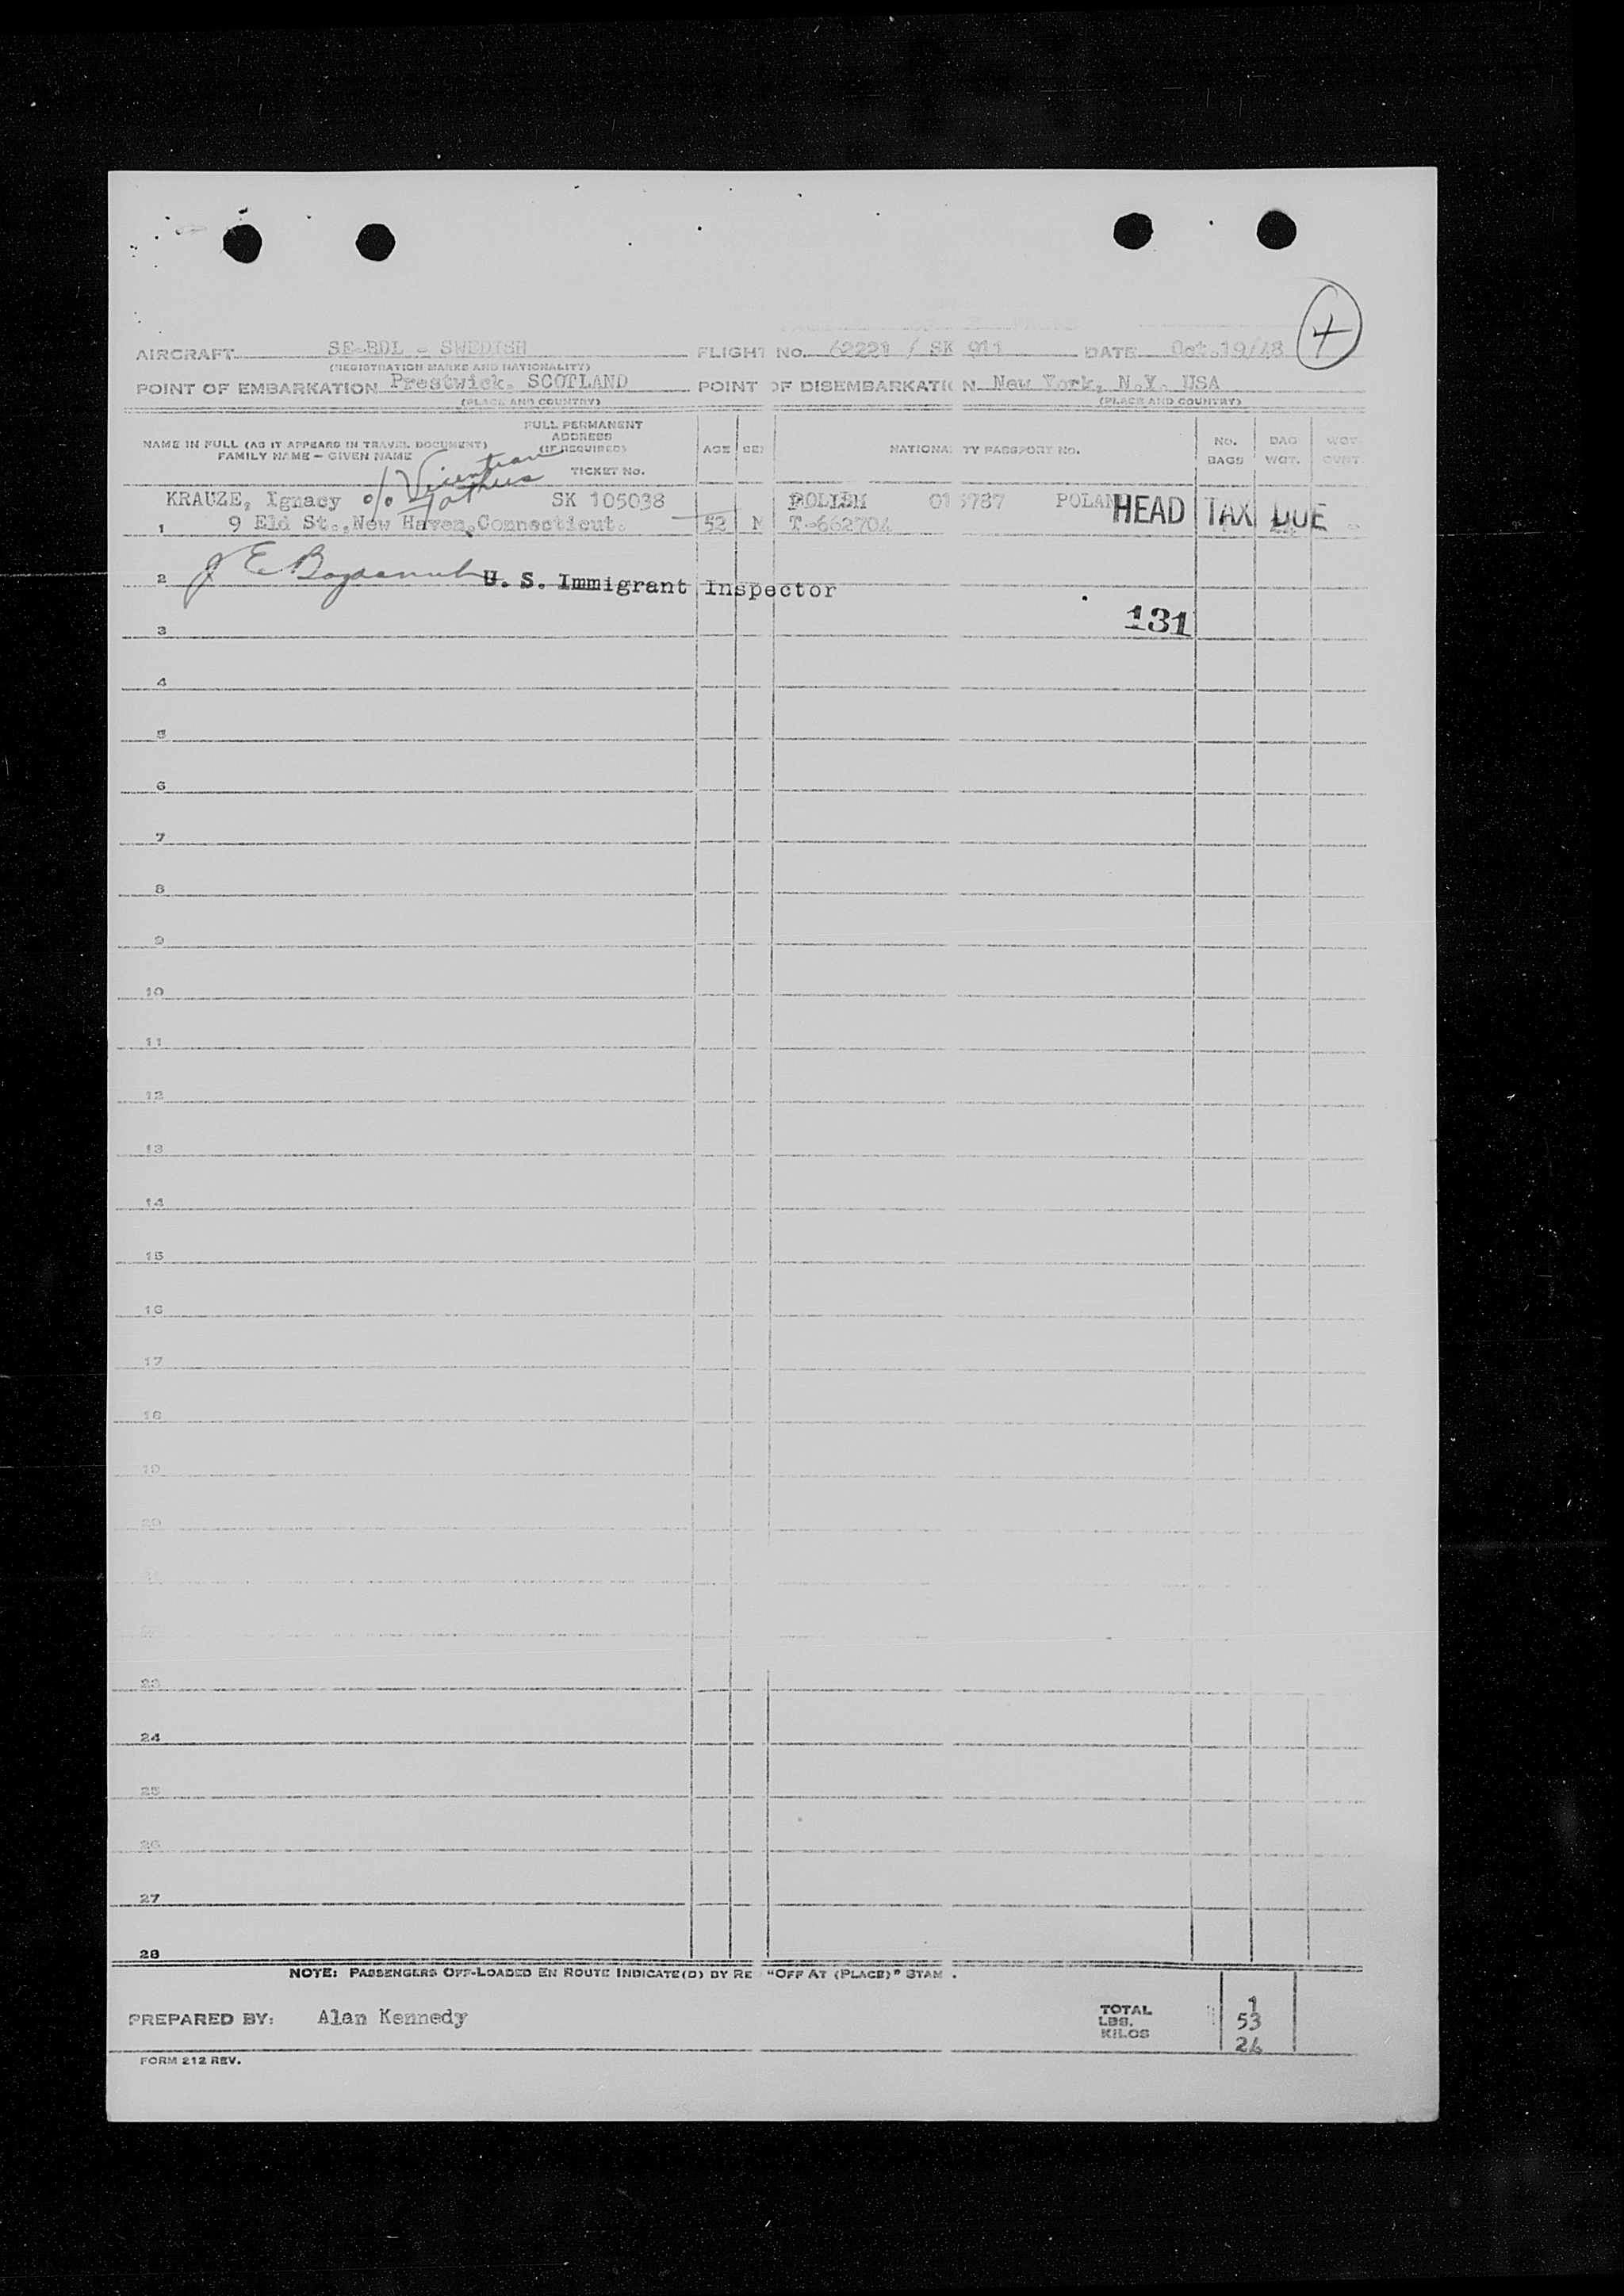 4
AIRCRAFT SE-BDL - SWEDISH FLIGHT No. 62221 / SK 911 DATE Oct.19/48
(REGISTRATION MARKS AND NATIONALITY)
POINT OF EMBARKATION Prestwick. SCOTLAND POINT OF DISEMBARKATI N New York, N.Y. USA
(PLACE AND COUNTRY) (PLACE AND COUNTRY)
NAME IN FULL (AS IT APPEARS IN TRAVEL DOCUMENT)
FAMILY NAME – GIVEN NAME
FULL PERMANENT
ADDRESS
(IF REQUIRED)
TICKET No.
AGE SEX NATIONAL TY PASSPORT No. No. BAGS BAG WGT. WGT.
KRAUZE, Ignacy c/o SK 105038 POLISH POLAN HEAD TAX DUE
1 9 Eld St.,New Haven,Connecticut. 52 M T-662704
2 J E U. S. Immigrant Inspector
131
3
4
5
6
7
8
9
10
11
12
13
14
15
16
17
18
19
20
23
24
25
26
27
28
NOTE: PASSENGERS OFF-LOADED EN ROUTE INDICATE(D) BY RE "OFF AT (PLACE)" STAM .
PREPARED BY: Alan Kennedy
TOTAL 1
LBS. 53
KILOS 24
FORM 212 REV.